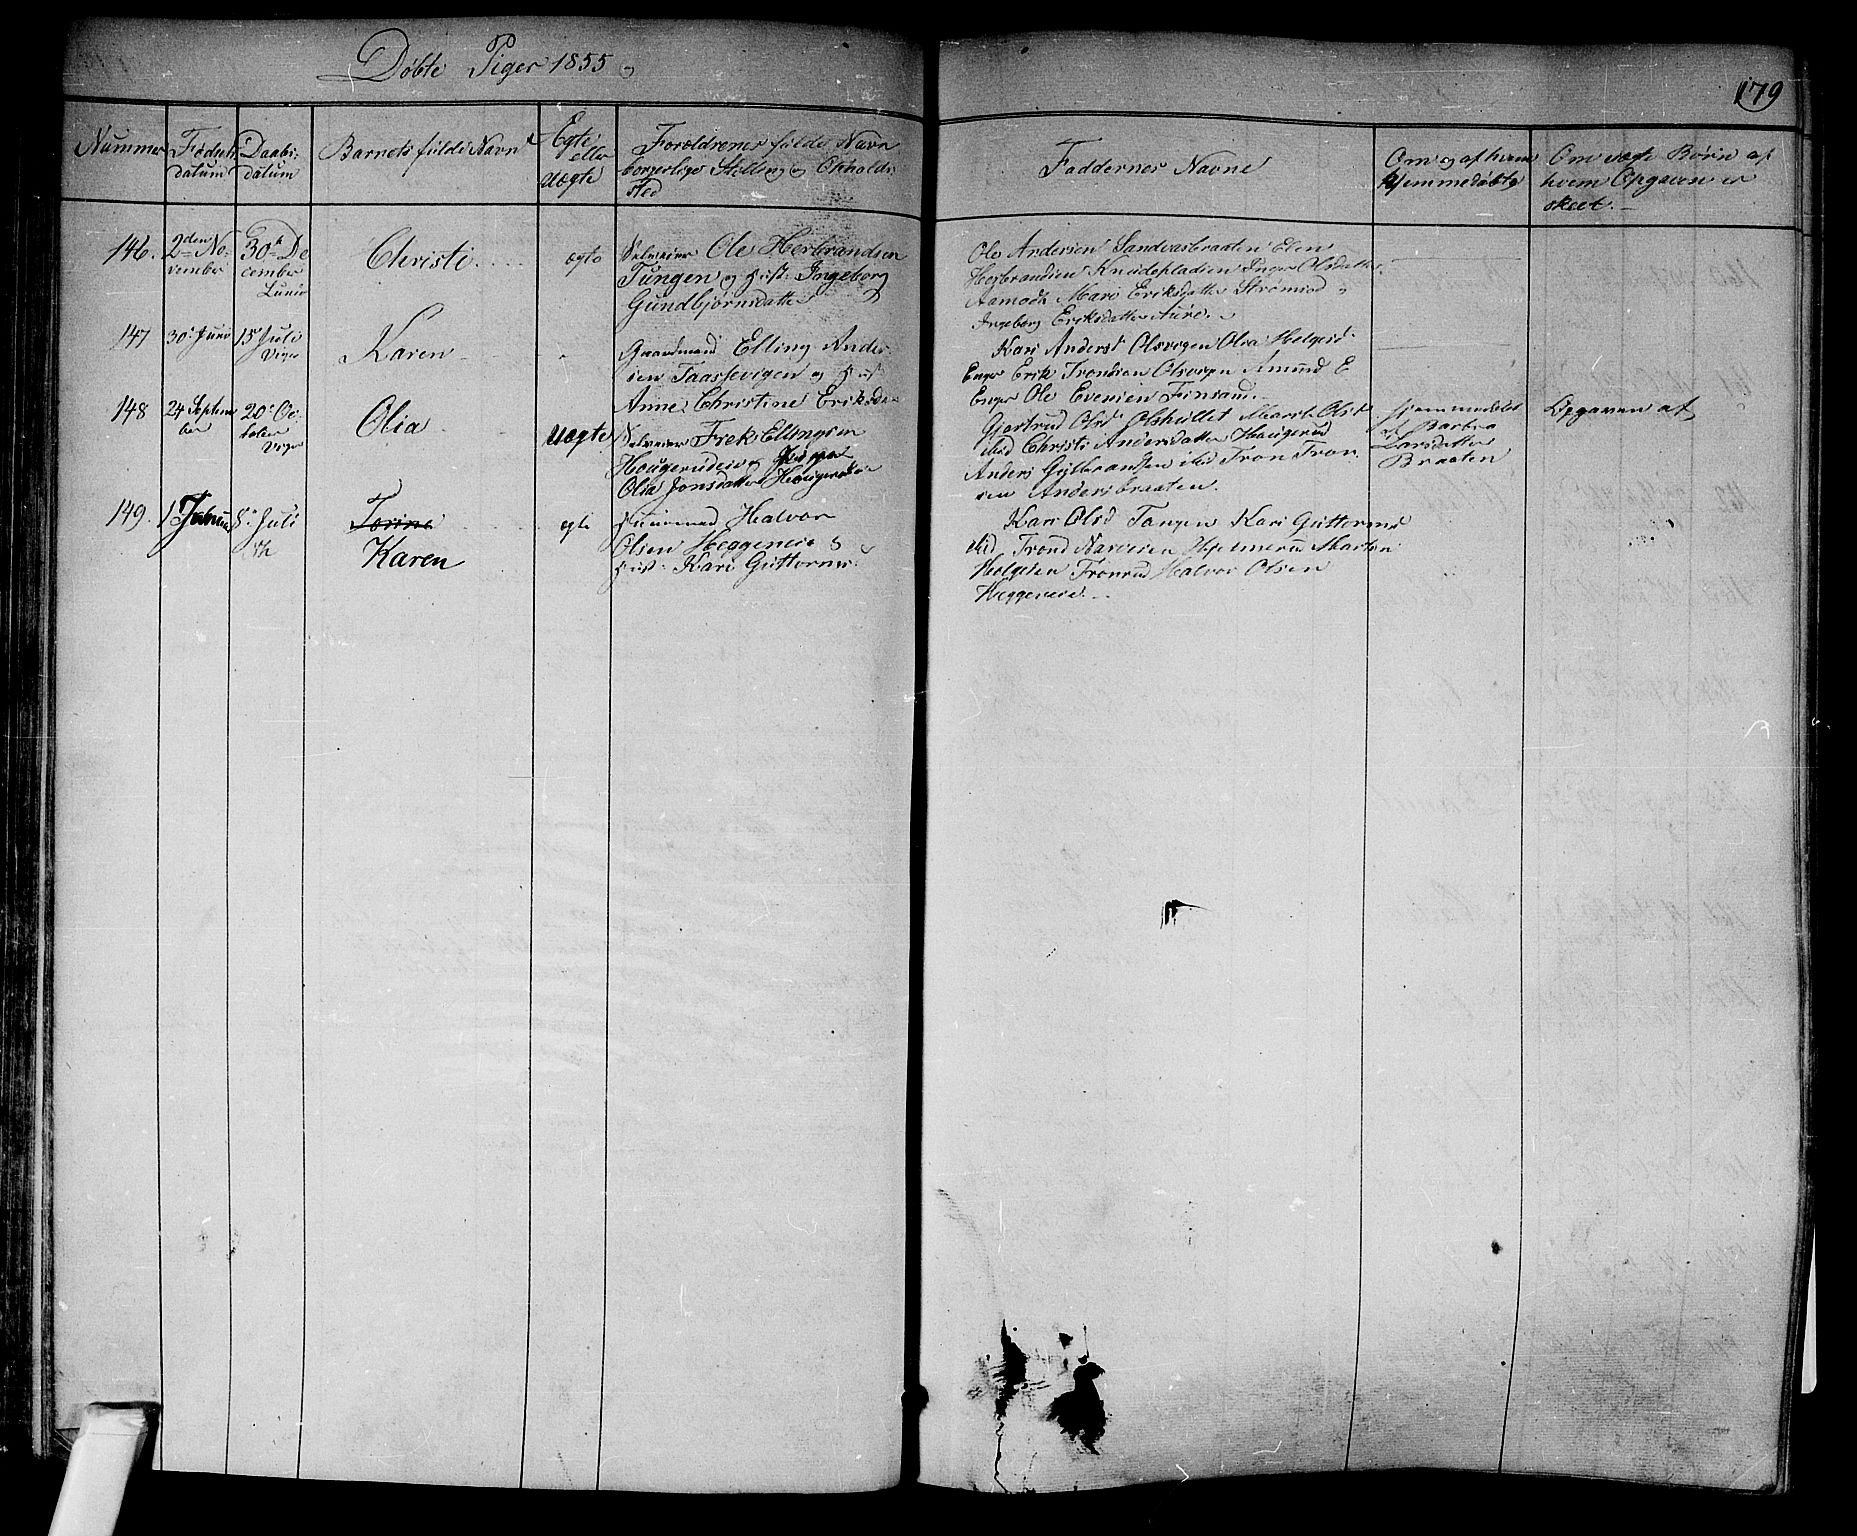 Døbte Piger 1855
179
Nummer
Fødsels datum
Daabs- datum
Barnets fulde Navn
Egte eller Uegte
Forældrenes fulde Navn
borgerlige Stilling og Opholds
sted
Faddernes Navne
Om og af hvem
hjemmedøbte
Om uegte Børn af
hvem Opgaven er
skeet.
146.
2den No-
vember
30te De
cember
Christi
ægte
Selveier Ole Herbrandsen
Tungen og Hust. Ingeborg
Gundbjørnsdatter
Ole Andersen Sandvasbraaten Elen
Herbrandsen Knudepladsen Inger Olsdatter
Aamodt Mari Eriksdatter Strømsod
Ingeborg Eriksdatter Aure.
147
30te Juni
15de Juli
Karen
Gaardmand Elling Ander
sen Taassevigen og Hust
Anne Christine Eriksda
Kari Anderst Olsvegen Olia Helgesd.
Enger Erik Trondsen Olsvegen Amund E
Enger Ole Evensen Finsand
148
24 Septem
ber
20de Oc
tober
Olia
Uægte
Selveier Erek Ellingsen
Haugerudeie og Pigen
Olia Jonsdatter Haugerudeie
Gjertrud Olsd Olshullet Marit Olst
Eid Christi Andersdatter Haugerud
Anders Gulbrandsen Eid Tron Tron
sen Andersbraaten.
Hjemmedøbt
af Barbra
Larsdatter
Braaten
Opgaven af
149.
5te Juli
Torine
Karen
ægte
Huusmand Halvor
Olsen Heggeneie &
Hust: Kari Guttorms
Kari Olsd Tangen Kari Guttorms
Eid Trond Narvesen Hjelmerud Marten
Helgesen Tronrud Halvor Olsen
Heggeneie.